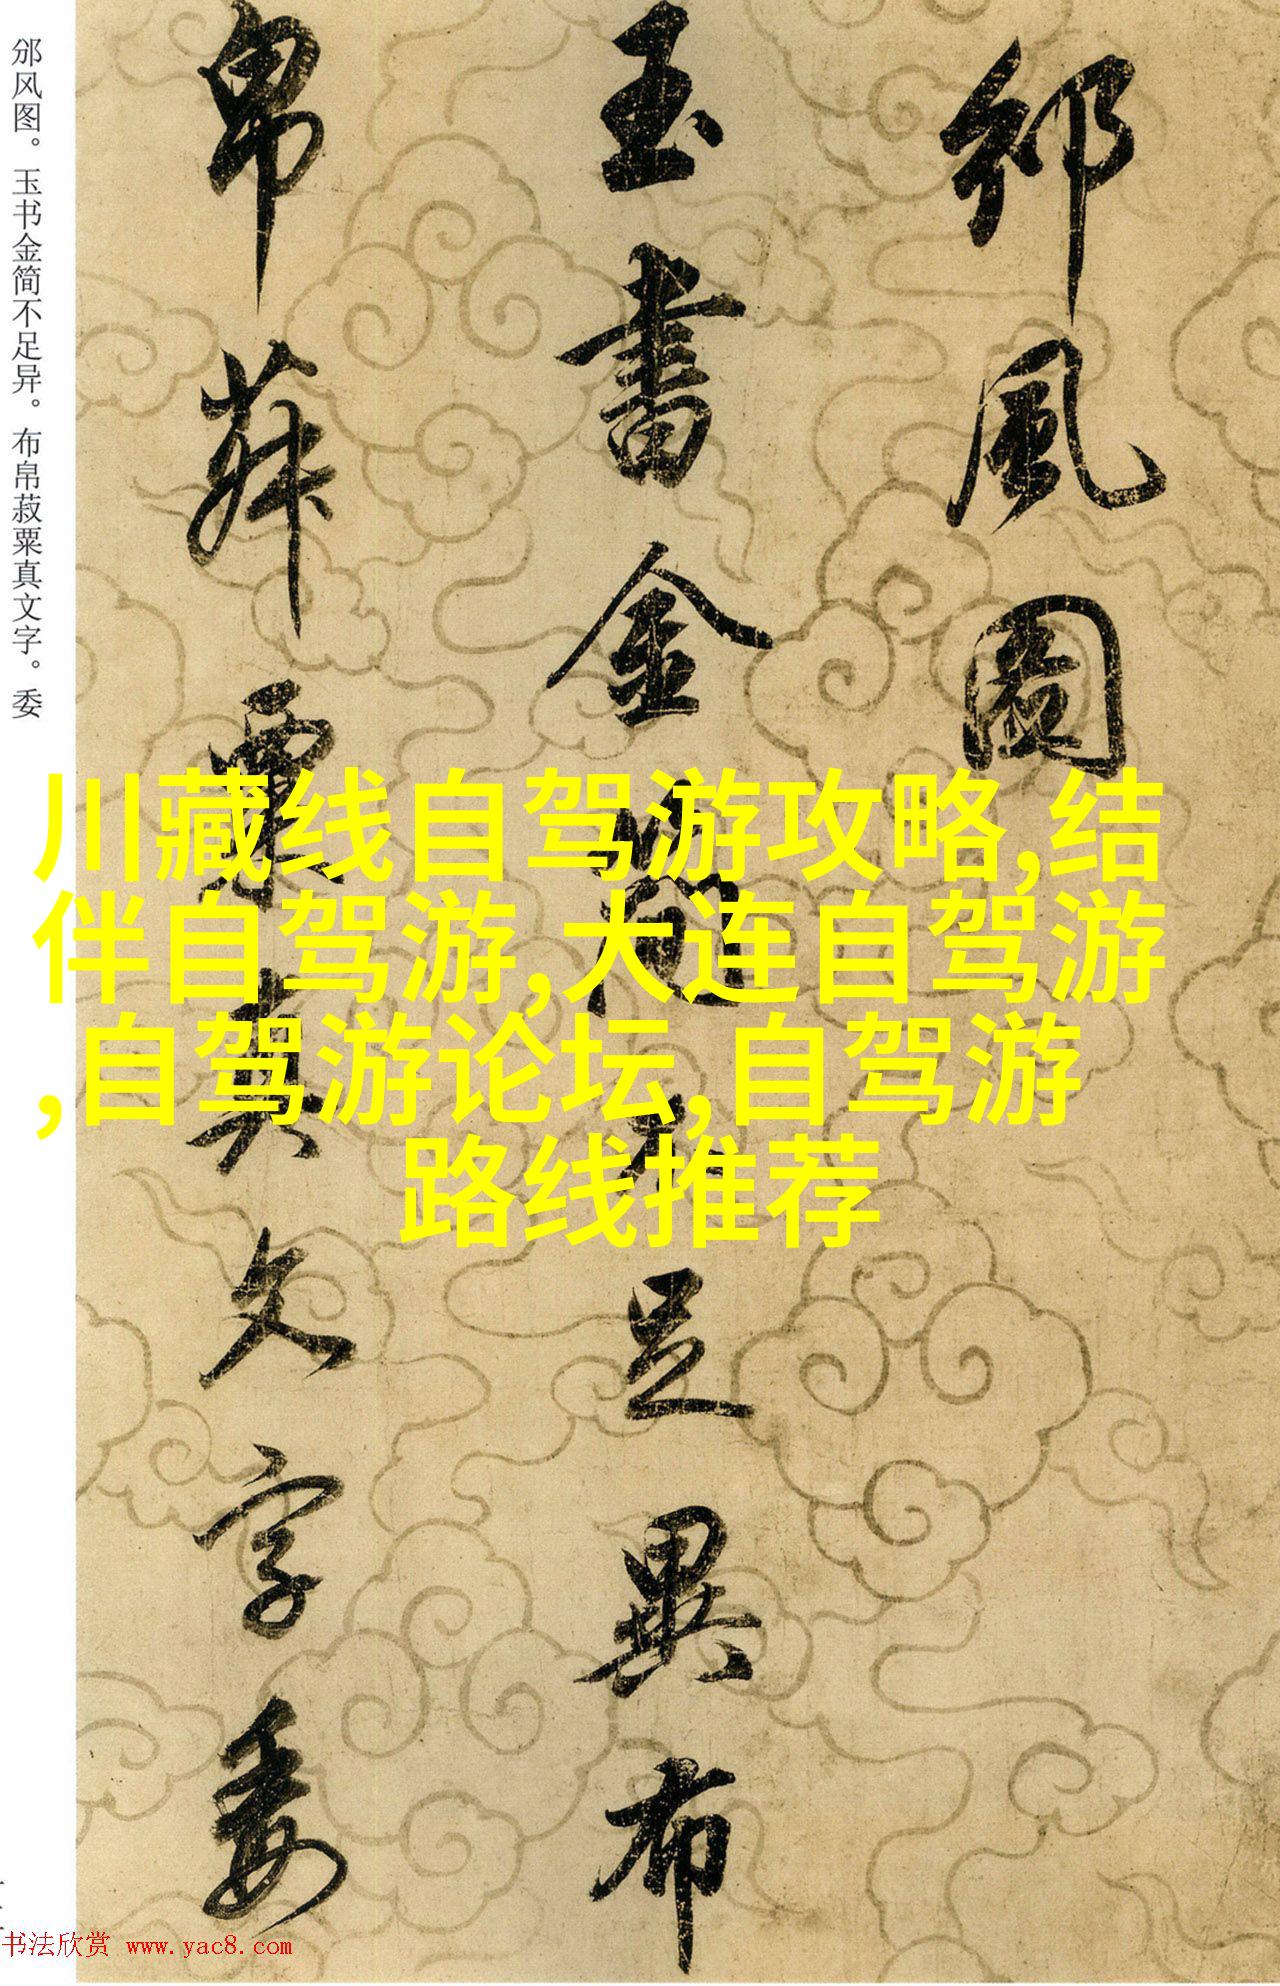 邠风图。玉书金简不足异。布帛菽粟真文字。委
邠風圖
玉書金簡不足異布
帛菽粟真文字委
川藏线自驾游攻略,结
伴自驾游,大连自驾游
,自驾游论坛,自驾游
路线推荐
书法欣赏 www.yac8.com